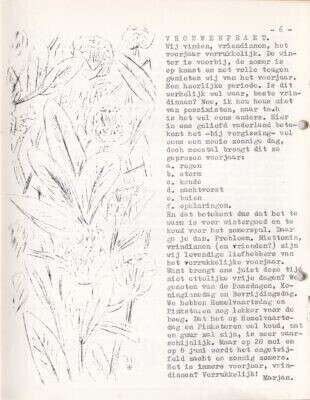 - 6 -
VROUWENPRAAT.
Wij vinden, vriendinnen, het
voorjaar verrukkelijk. De win-
ter is voorbij, de zomer is
op komst en met volle teugen
genieten wij van het voorjaar.
Een heerlijke periode. Is dit
werkelijk wel waar, beste vrin-
dinnen? Nou, ik hou heus niet
van pessimisten, maar toch
is het wel eens anders. Hier
in ons geliefd vaderland bete-
kent het -bij vergissing- wel
eens een mooie zonnige dag,
doch meestal brengt dit zo
geprezen voorjaar:
a. regen
b. storm
c. koude
d. nachtvorst
e. buien
f. opklaringen.
En dat betekent dus dat het te
warm is voor wintergoed en te
koud voor het zomerspul. Daar
ga je dan. Probleem. Niettemin,
vrindinnen (en vrienden?) zijn
wij levendige liefhebbers van
het verrukkelijke voorjaar.
Want brengt ons juist deze tijd
niet ettelijke vrije dagen? We
genoten van de Paasdagen, Ko-
ninginnedag en Bevrijdingsdag.
We hebben Hemelvaartsdag en
Pinksteren nog lekker voor de
boeg. Dat het op Hemelvaarts-
dag en Pinksteren wel koud, nat
en guur zal zijn, is zeer waar-
schijnlijk. Maar op 28 mei en
op 6 juni wordt het ongetwij-
feld zacht en zonnig zomers.
Het is immers voorjaar, vrin-
dinnen! Verrukkelijk!
Marjan.